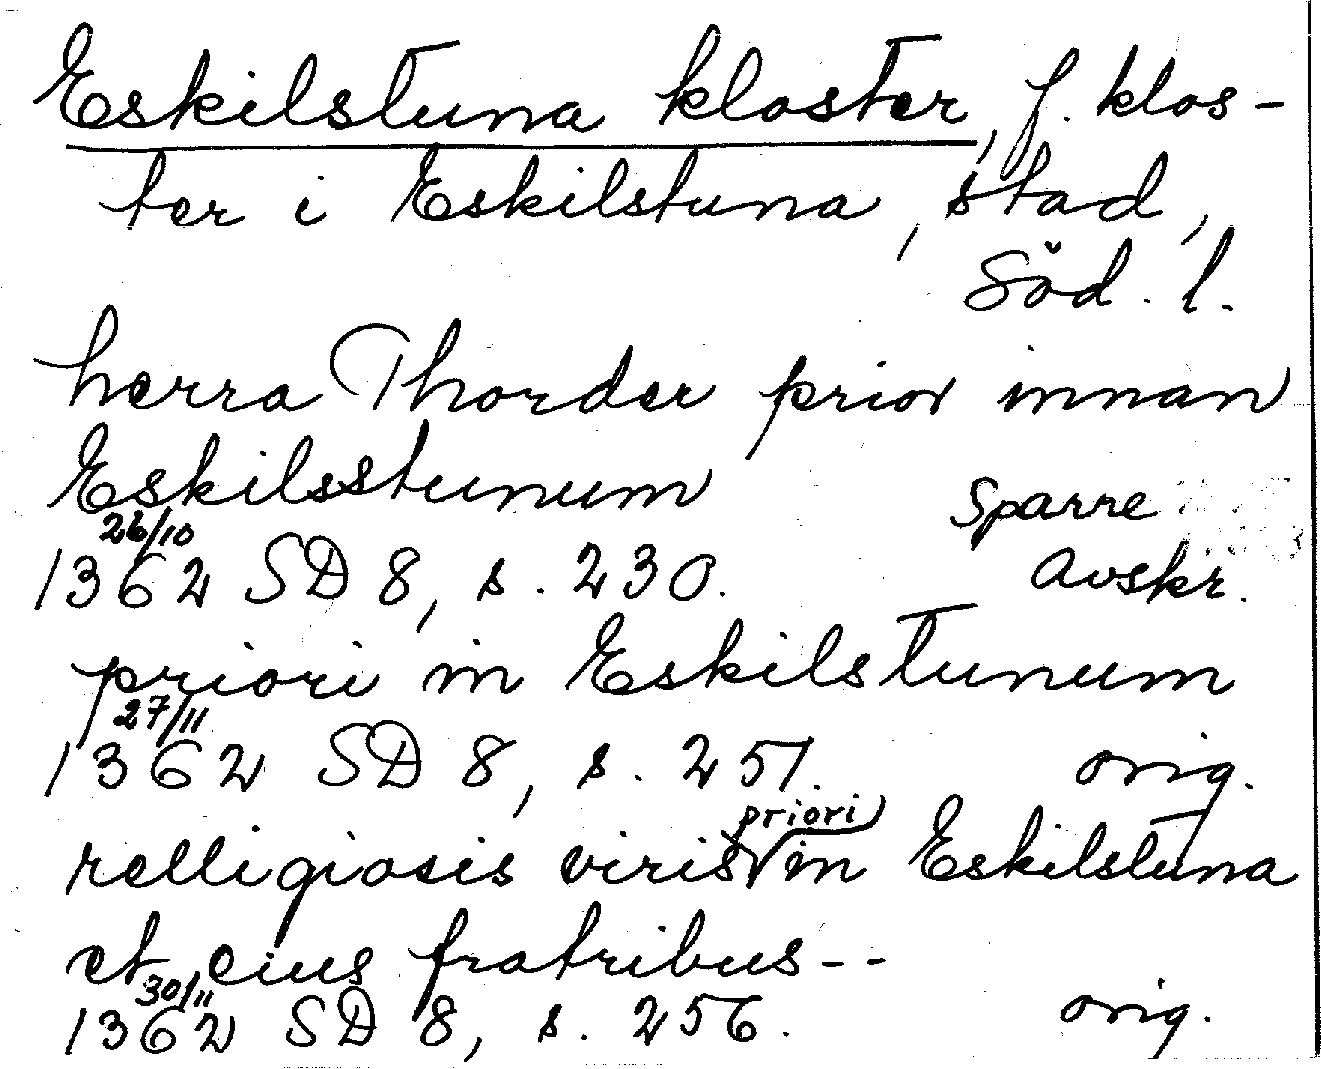 Eskilstuna kloster, f. klos-
ter i Eskilstuna, stad,
Söd. l.
herra Thorder prior innan
Eskilsstunum
Sparre
26/10
1362 SD 8, s. 230.
Avskr.
priori in Eskilstunum
27/11
1362 SD 8, s. 251. orig.
priori
relligiosis viris √ in Eskilstuna
et eius fratribus--
30/11
1362 SD 8, s. 256. orig.